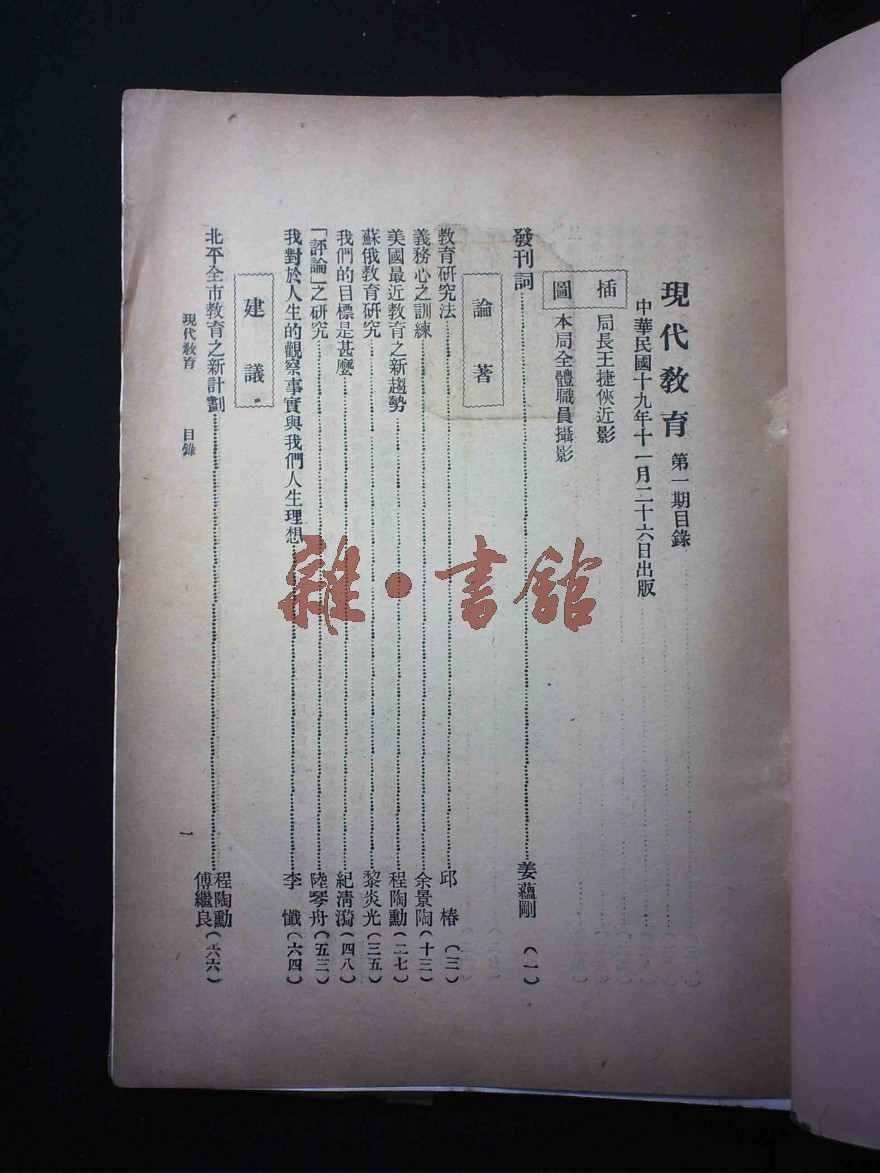 現代教育 第一期目錄
中華民國十九年十一月二十六日出版
插圖
局長王捷俠近影
本局全體職員攝影
發刊詞……姜蘊剛(一)
論著
教育研究法……邱椿(三)
義務心之訓練……余景陶(十三)
美國最近教育之新趨勢……程陶勳(二七)
蘇俄教育研究……黎炎光(三五)
我們的目標是甚麼……紀清漪(四八)
「評論」之研究……陸琴舟(五三)
我對於人生的觀察事實與我們人生理想……李懺(六四)
建議
北平全市教育之新計劃……程陶勳 傅繼良(六六)
現代教育 目錄
一
雜·書館